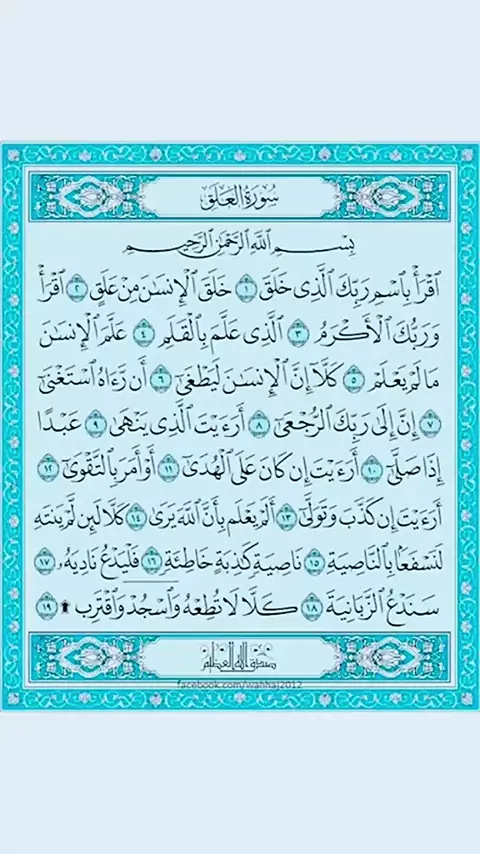 سُورَةُ الْعَلَقِ
بِسْمِ ٱللَّهِ ٱلرَّحْمَٰنِ ٱلرَّحِيمِ
ٱقْرَأْ بِٱسْمِ رَبِّكَ ٱلَّذِى خَلَقَ ١ خَلَقَ ٱلْإِنسَٰنَ مِنْ عَلَقٍ ٢ ٱقْرَأْ
وَرَبُّكَ ٱلْأَكْرَمُ ٣ ٱلَّذِى عَلَّمَ بِٱلْقَلَمِ ٤ عَلَّمَ ٱلْإِنسَٰنَ
مَا لَمْ يَعْلَمْ ٥ كَلَّآ إِنَّ ٱلْإِنسَٰنَ لَيَطْغَىٰٓ ٦ أَن رَّءَاهُ ٱسْتَغْنَىٰٓ
٧ إِنَّ إِلَىٰ رَبِّكَ ٱلرُّجْعَىٰٓ ٨ أَرَءَيْتَ ٱلَّذِى يَنْهَىٰ ٩ عَبْدًا
إِذَا صَلَّىٰٓ ١٠ أَرَءَيْتَ إِن كَانَ عَلَى ٱلْهُدَىٰٓ ١١ أَوْ أَمَرَ بِٱلتَّقْوَىٰٓ ١٢
أَرَءَيْتَ إِن كَذَّبَ وَتَوَلَّىٰٓ ١٣ أَلَمْ يَعْلَم بِأَنَّ ٱللَّهَ يَرَىٰ ١٤ كَلَّا لَئِن لَّمْ يَنتَهِ
لَنَسْفَعًۢا بِٱلنَّاصِيَةِ ١٥ نَاصِيَةٍ كَٰذِبَةٍ خَاطِئَةٍ ١٦ فَلْيَدْعُ نَادِيَهُۥ ١٧
سَنَدْعُ ٱلزَّبَانِيَةَ ١٨ كَلَّا لَا تُطِعْهُ وَٱسْجُدْ وَٱقْتَرِب ۩ ١٩
صدق الله العظيم
facebook.com/wahhaj2012